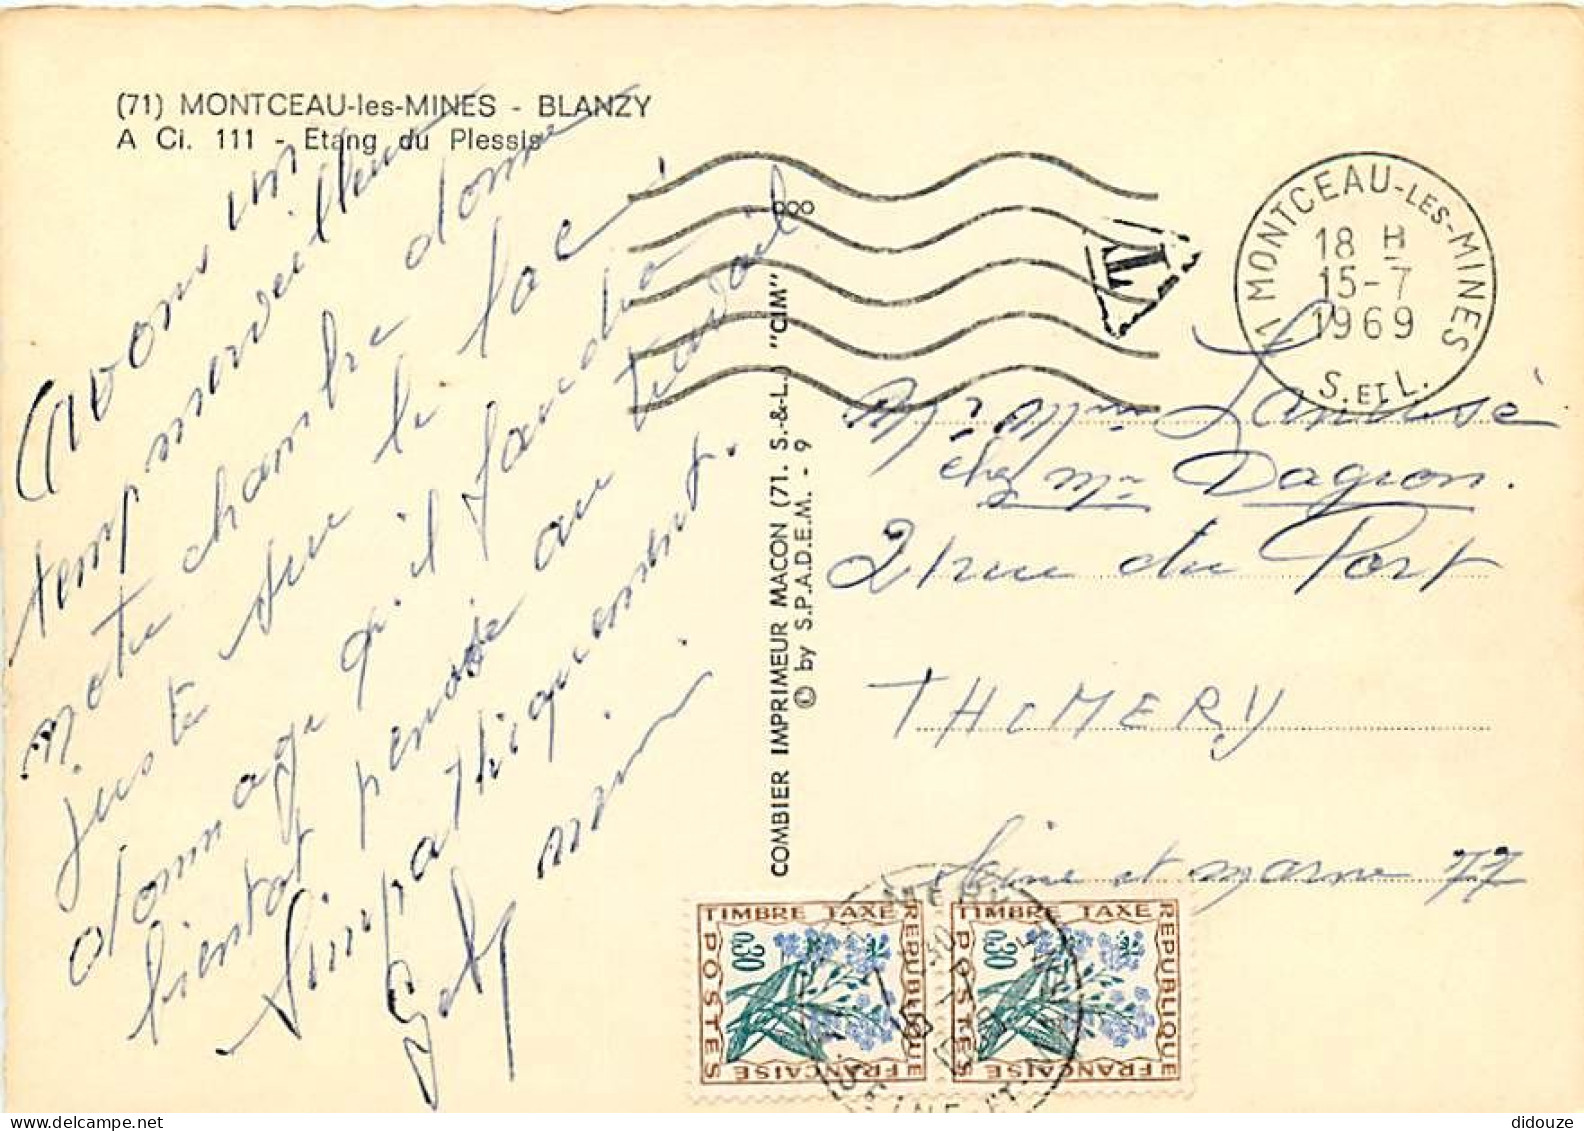 (71) MONTCEAU-les-MINES - BLANZY
A Ci. 111 - Etang du Plessis
Avons un
temps merveilleux
notre chambre donne
juste sur le lac
dommage qu'il faudra
bientot pensé au travail
Simpathiquement.
COMBIER IMPRIMEUR MACON (71. S.-&-L.) "CIM"
© by S.P.A.D.E.M. - 9
T
71 MONTCEAU-LES-MINES
18 H
15-7
1969
S. ET L.
Mr Mme
chez Mr Dagron.
21 rue du Port
THOMERY
Seine et Marne 77
TIMBRE TAXE
REPUBLIQUE
FRANÇAISE
POSTES
0,30
TIMBRE TAXE
REPUBLIQUE
FRANÇAISE
POSTES
0,30
SEINE-ET-M
didouze